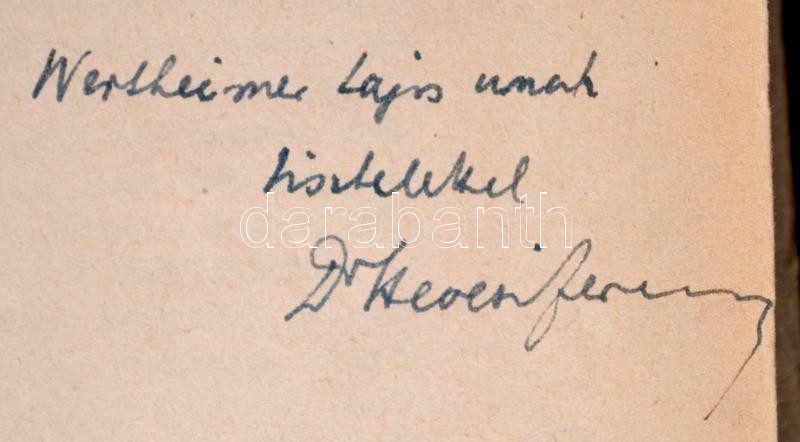 Wertheimer Lajos urnak
tisztelettel
darabanth
Dr Hevesi Ferenc